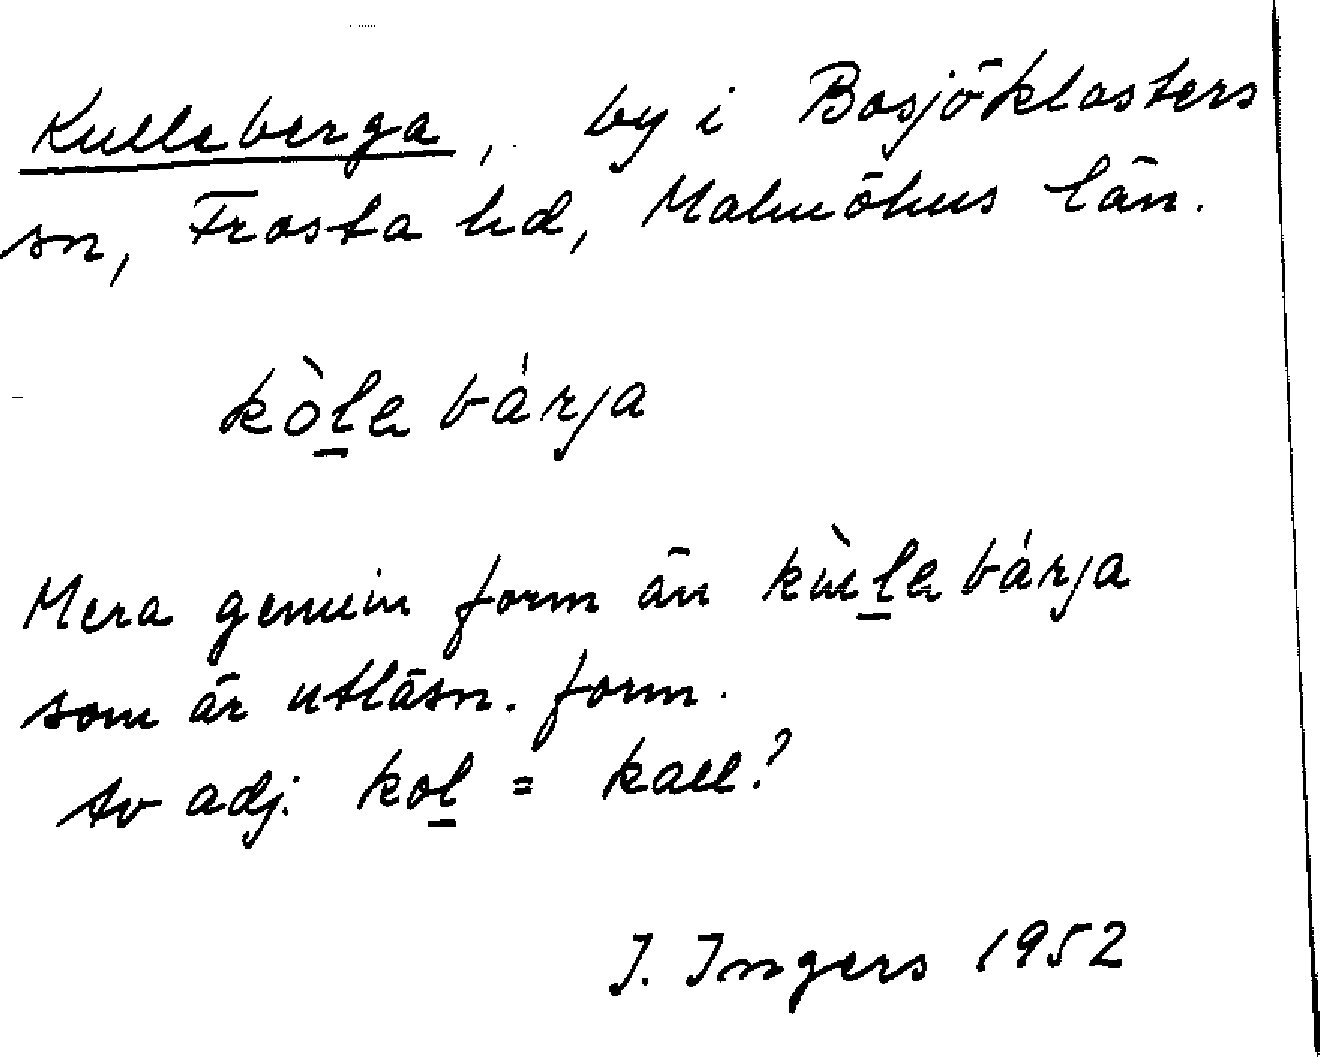 Kulleberga, by i Bosjöklosters
sn, Frosta hd, Malmöhus län.
kòl̲a bárja
Mera genuin form än kùl̲a bárja
som är utläsn. form.
Av adj. kol̲ = kall?
I. Ingers 1952